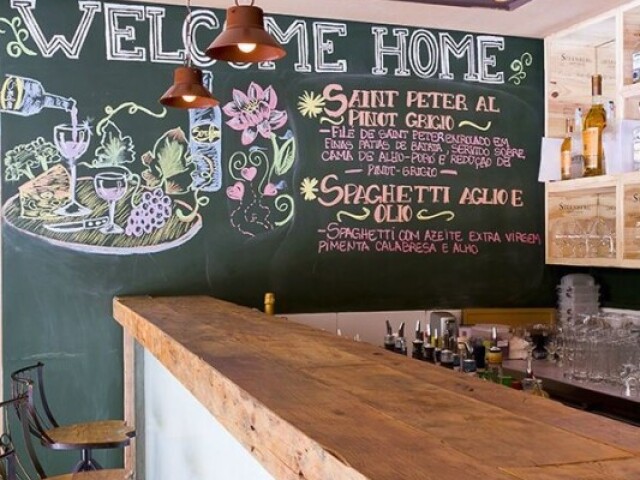 WELCOME HOME
SAINT PETER AL
PINOT GRIGIO
- FILE DE SAINT PETER ENROLADO EM
FINAS FATIAS DE BATATA, SERVIDO SOBRE
CAMA DE ALHO-PORÓ E REDUÇÃO DE
PINOT-GRIGIO
SPAGHETTI AGLIO E
OLIO
- SPAGHETTI COM AZEITE EXTRA VIRGEM
PIMENTA CALABRESA E ALHO